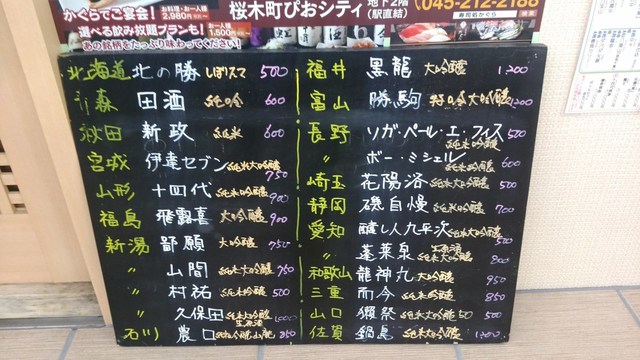 かぐらでご宴会！
お料理・お一人様
2,980円
選べる飲み放題プランも！
お一人様
1,500円
あの銘柄をたっぷり味わってください！
桜木町ぴおシティ
地下2階
(駅直結)
045-212-2188
北海道 北の勝 しぼりたて 500
青森 田酒 純吟 600
秋田 新政 純米 600
宮城 伊達セブン 純米大吟醸 750
山形 十四代 純米吟醸 900
福島 飛露喜 大吟醸 900
新潟 鄙願 大吟醸 750
〃 山間 純米大吟醸 750
〃 村祐 純米吟醸 500
〃 久保田 純米大吟醸 生原酒 1000
石川 農口 純米 山廃 850
福井 黒龍 大吟醸 1,200
富山 勝駒 特吟大吟醸 1,200
長野 ソガ・ペール・エ・フィス 純米吟醸 500
〃 ボー・ミシェル 純米吟醸 600
埼玉 花陽浴 純米大吟醸 500
静岡 磯自慢 純米吟醸 700
愛知 醸し人九平次 純米大吟醸 500
〃 蓬莱泉 生原酒 純米大吟醸 800
和歌山 龍神丸 大吟醸 950
三重 而今 純米吟醸 850
山口 獺祭 純米大吟醸 50 500
佐賀 鍋島 純米大吟醸